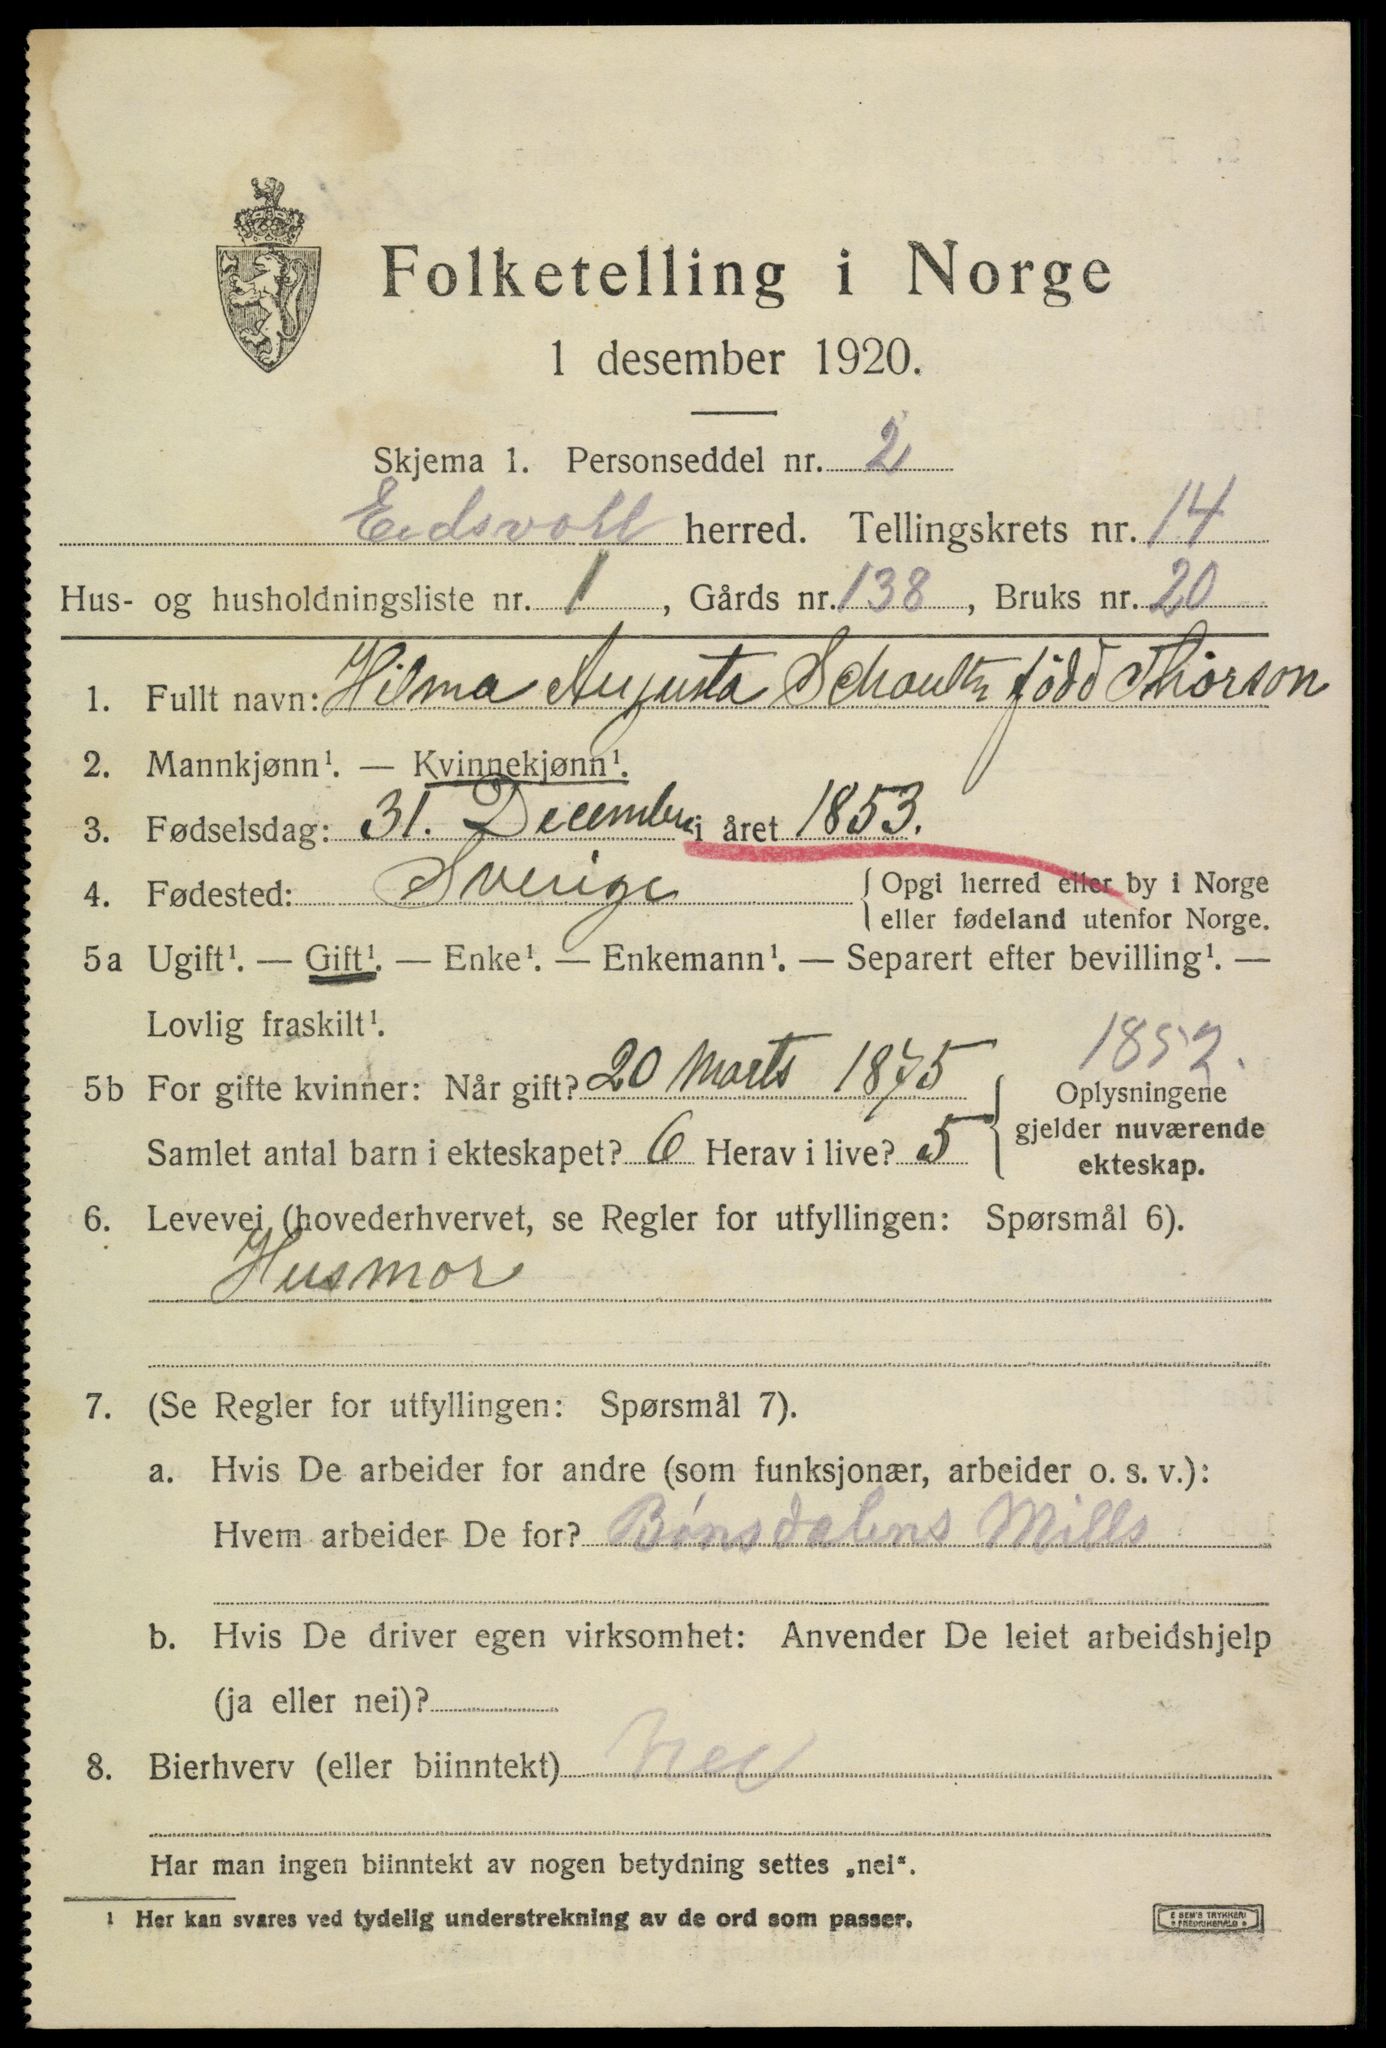 Folketelling i Norge
1 desember 1920.
Skjema 1. Personseddel nr. 2
Eidsvoll herred. Tellingskrets nr. 14
Hus- og husholdningsliste nr. 1, Gårds nr. 138, Bruks nr. 20
1. Fullt navn: Hilma Augusta Schoultz född Thorson
2. Mannkjønn¹. — Kvinnekjønn¹.
3. Fødselsdag: 31. December i året 1853.
4. Fødested: Sverige { Opgi herred eller by i Norge
eller fødeland utenfor Norge.
5a Ugift¹. — Gift¹. — Enke¹. — Enkemann¹. — Separert efter bevilling¹. —
Lovlig fraskilt¹.
1852.
5b For gifte kvinner: Når gift? 20 Marts 1875
Samlet antal barn i ekteskapet? 6 Herav i live? 5
Oplysningene
gjelder nuværende
ekteskap.
6. Levevei (hovederhvervet, se Regler for utfyllingen: Spørsmål 6).
Husmor
7. (Se Regler for utfyllingen: Spørsmål 7).
a. Hvis De arbeider for andre (som funksjonær, arbeider o. s. v.):
Hvem arbeider De for? Bønsdalens Mills
b. Hvis De driver egen virksomhet: Anvender De leiet arbeidshjelp
(ja eller nei)?
8. Bierhverv (eller biinntekt) Nei
Har man ingen biinntekt av nogen betydning settes „nei“.
¹ Her kan svares ved tydelig understrekning av de ord som passer.
E SEM'S TRYKKERI
FREDRIKSHALD